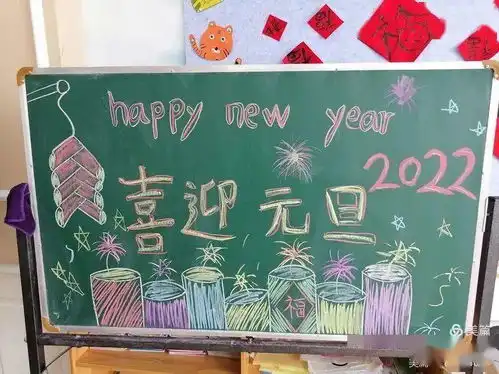 happy new year
2022
喜迎元旦
福
美篇
美篇